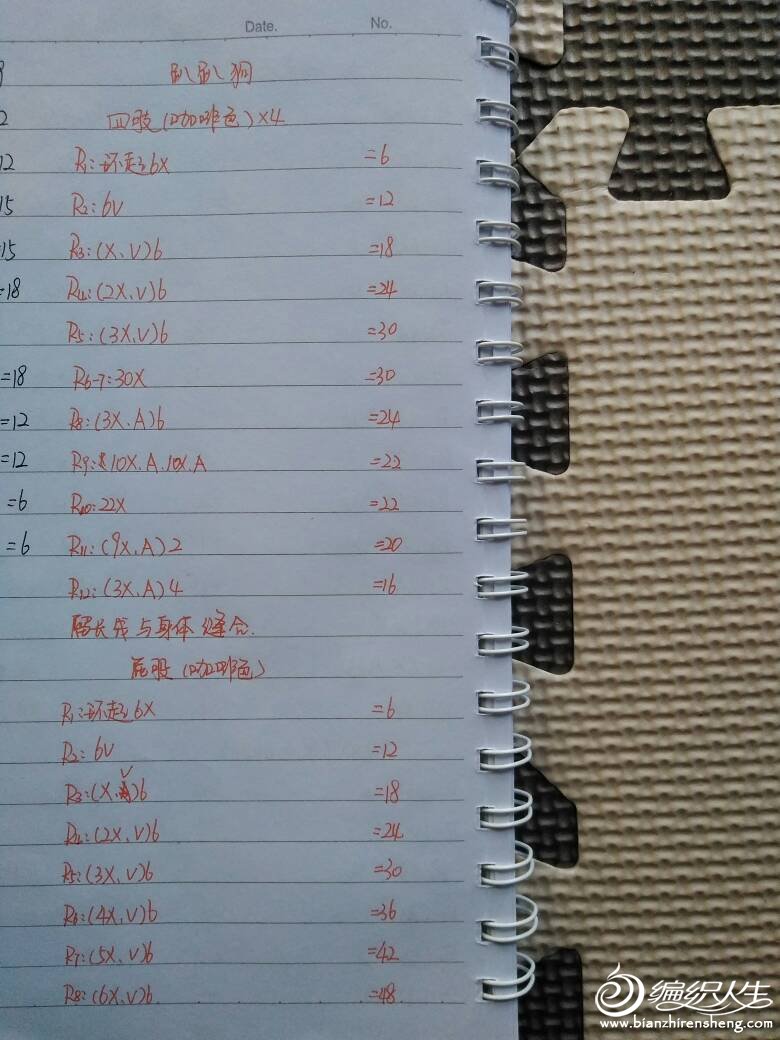 Date. No.
趴趴狗
四肢(咖啡色)×4
R1:环起6X =6
R2:6V =12
R3:(X、V)6 =18
R4:(2X、V)6 =24
R5:(3X、V)6 =30
R6-7:30X =30
R8:(3X、A)6 =24
R9:10X、A、10X、A =22
R10:22X =22
R11:(9X、A)2 =20
R12:(3X、A)4 =16
留长线与身体缝合.
屁股(咖啡色)
R1:环起6X =6
R2:6V =12
R3:(X、V)6 =18
R4:(2X、V)6 =24
R5:(3X、V)6 =30
R6:(4X、V)6 =36
R7:(5X、V)6 =42
R8:(6X、V)6 =48
2
12
15
=15
=18
=18
=12
=12
=6
=6
编织人生
www.bianzhirensheng.com